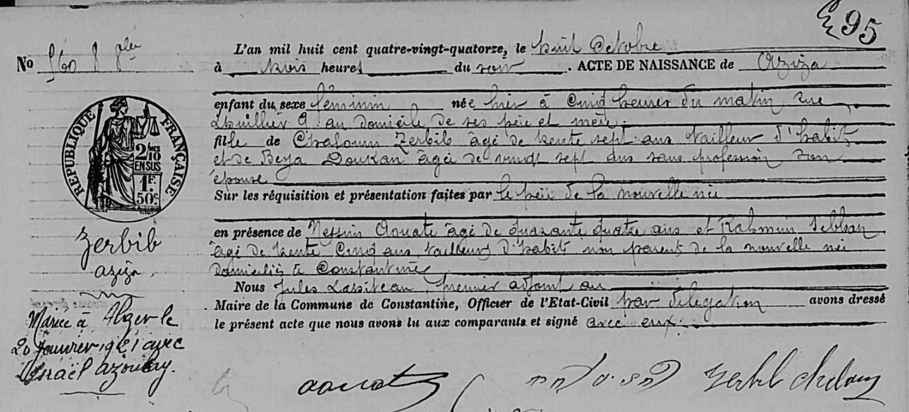 95
L'an mil huit cent quatre-vingt-quatorze, le huit Octobre
No 560 8 8bre
à trois heures du soir. ACTE DE NAISSANCE de Aziza
enfant du sexe féminin née hier à Cinq heures du matin rue
Lhuillier 9 au domicile de ses père et mère.
fille de Chaloum Zerbib âgé de trente sept ans tailleur d'habits
et de Beya Doukan âgée de vingt sept ans sans profession son
épouse
Sur les réquisition et présentation faites par le père de la nouvelle née
en présence de Nessim Aouate âgé de quarante quatre ans et Rahmim
âgé de trente Cinq ans tailleurs d'habits non parents de la nouvelle née
domiciliés à Constantine
Nous Jules premier adjoint au
Maire de la Commune de Constantine, Officier de l'Etat-Civil par délégation avons dressé
le présent acte que nous avons lu aux comparants et signé avec eux.
RÉPUBLIQUE FRANÇAISE
2/10
EN SUS
1F.
50c
Zerbib
aziza.
Mariée à Alger le
20 janvier 1921 avec
Israël Azoulay.
Zerbib